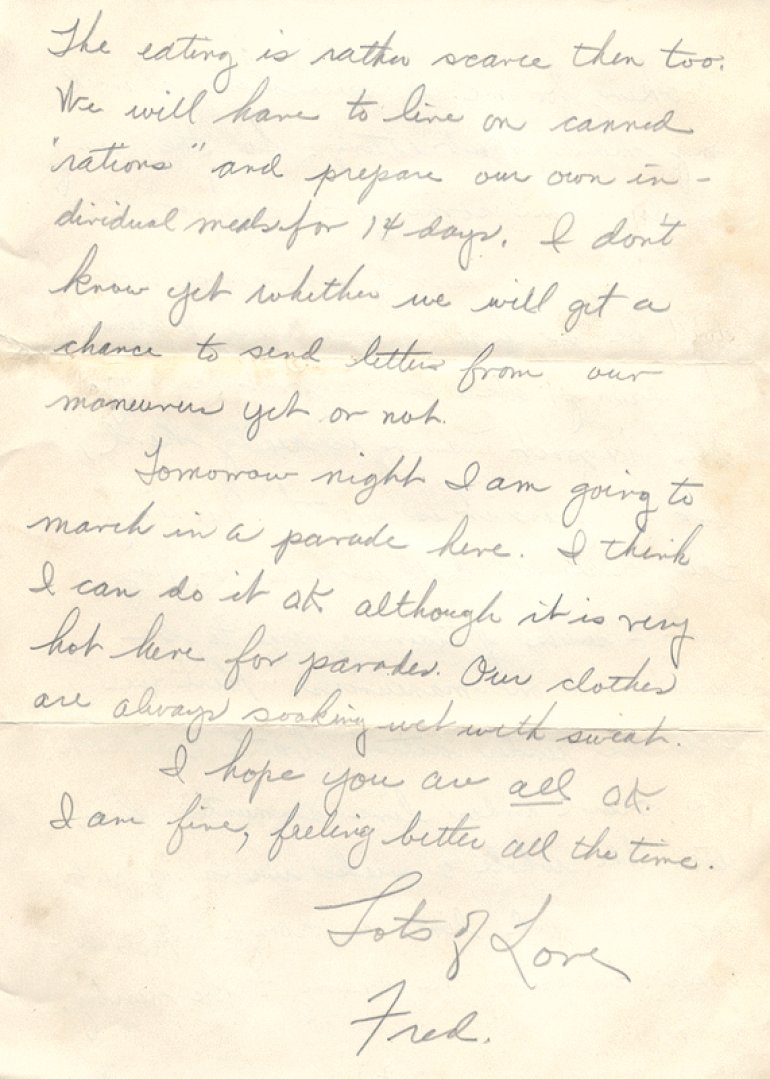 The eating is rather scarce then too.
We will have to live on canned
"rations" and prepare our own in-
dividual meals for 14 days. I don't
know yet whether we will get a
chance to send letters from our
maneuvers yet or not.
Tomorrow night I am going to
march in a parade here. I think
I can do it OK although it is very
hot here for parades. Our clothes
are always soaking wet with sweat.
I hope you are all OK.
I am fine, feeling better all the time.
Lots of Love
Fred.